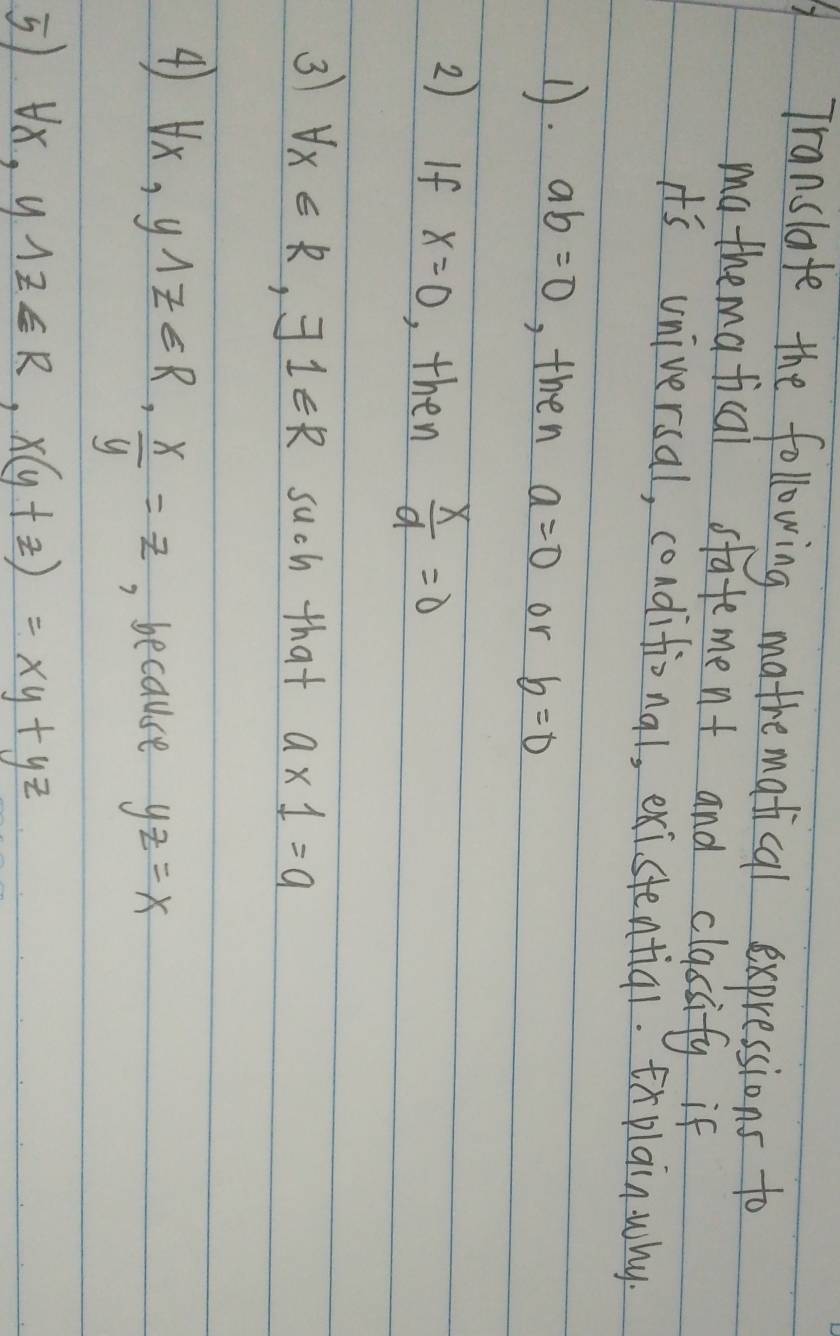 Translate the following mathematical expressions to
mathematical statement and classify if
it's universal, conditional, existential. Explain why.
1). ab=0, then a=0 or b=0
2) If x=0, then x/a = 0
3) ∀x ∈ R, ∃ 1 ∈ R such that a x 1 = a
4) ∀x, y ∧ z ∈ R, x/y = z, because yz = x
5) ∀x, y ∧ z ∈ R, x(y + z) = xy + yz